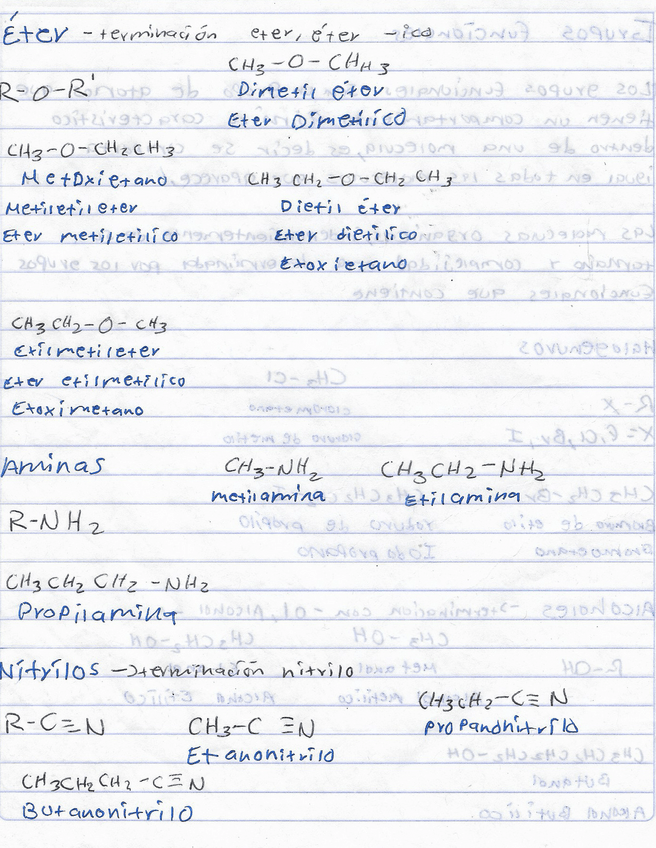 Éter - terminación eter, éter -ico
CH3-O-CHH3
R-O-R'
Dimetil éter
Eter Dimetilico
CH3-O-CH2CH3
MetOxietano
CH3CH2-O-CH2CH3
Metiletileter
Dietil éter
Eter metiletilico
Eter dietilico
Etoxietano
CH3CH2-O-CH3
Etilmetileter
Eter etilmetilico
Etoximetano
Aminas
CH3-NH2
CH3CH2-NH2
metilamina
Etilamina
R-NH2
CH3CH2CH2-NH2
Propilamina
Nitrilos → terminación nitrilo
CH3CH2-C≡N
R-C≡N
CH3-C≡N
Propanonitrilo
Etanonitrilo
CH3CH2CH2-C≡N
Butanonitrilo